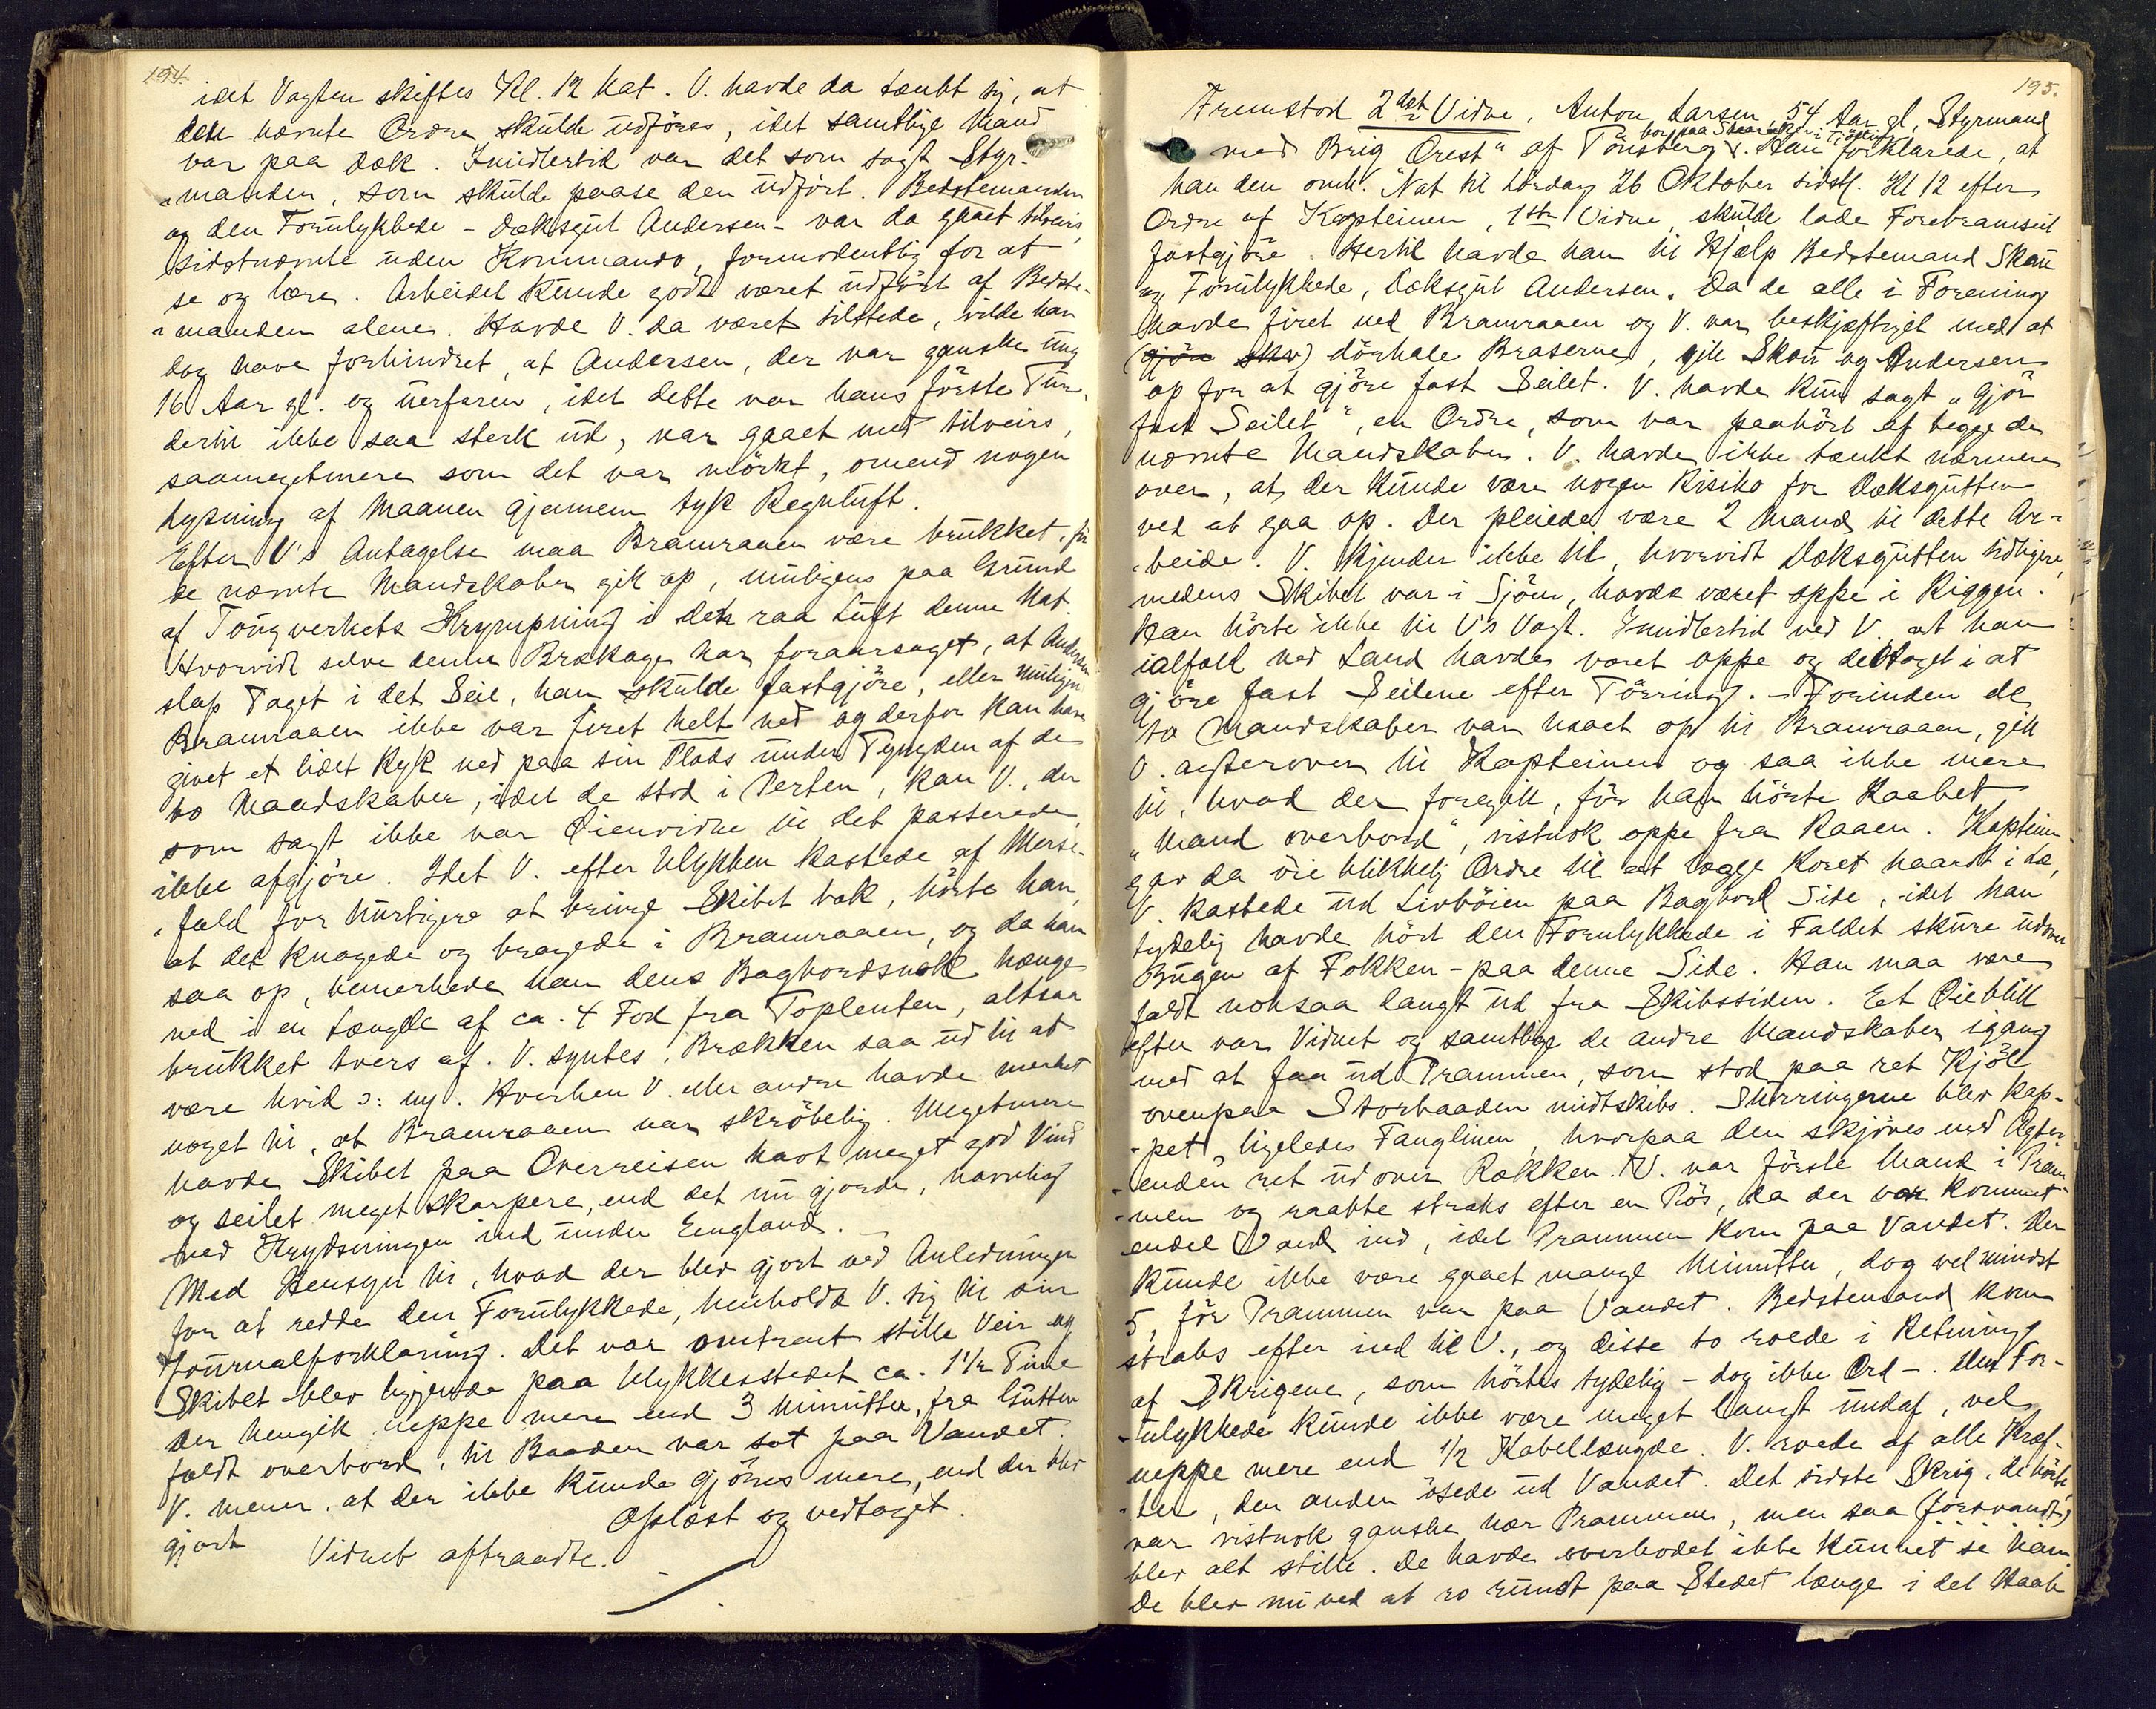 194.
idet Vagten skiftes Kl. 12 Nat. V. havde da tænkt sig, at
den nævnte Ordre skulde udföres, idet samtlige Mand
var paa Dæk. Imidlertid var det som sagt Styr-
manden, som skulde paase den udfört. Bedstemanden
og den Forulykkede - Dæksgut Andersen - var da gaaet tilveirs,
sidstnævnte uden Kommando, formodentlig for at
se og lære. Arbeidet kunde godt været udfört af Bedste-
manden alene. Havde V. da været tilstede, vilde han
dog have forhindret, at Andersen, der var ganske ung
16 Aar gl. og uerfaren, idet dette var hans förste Tur,
dertil ikke saa sterk ud, var gaaet med tilveirs,
saameget mere som det var mörkt, omend nogen
lysning af Maanen gjennem tyk Regnluft.
Efter V's Antagelse maa Bramraaen være brukket, för
de nævnte Mandskaber gik op, muligens paa Grund
af Tougverkets Krympning i den raa Luft denne Nat.
Hvorvidt selve denne Brækage har foraarsaget, at Andersen
slap Taget i det Seil, han skulde fastgjöre, eller muligens
Bramraaen ikke var firet helt ned og derfor kan have
givet et lidet Ryk ned paa sin Plads under Tyngden af de
to Mandskaber, idet de stod i Perten, kan V., der
som sagt ikke var Öienvidne til det passerede,
ikke afgjöre. Idet V. efter Ulykken kastede af Merse-
fald for hurtigere at bringe Skibet bak, hörte han,
at det knagede og bragede i Bramraaen, og da han
saa op, bemerkede han dens Bagbordsnok hænge
ned i en Længde af ca. 4 Fod fra Toplenten, altsaa
brukket tvers af. V. syntes, Brækken saa ud til at
være hvid ɔ: ny. Hverken V. eller andre havde merket
noget til, at Bramraaen var skröbelig. Meget mere
havde Skibet paa Overreisen havt meget god Vind
og seilet meget skarpere, end det nu gjorde, navnlig
ved Krydsningen ind under England.
Med Hensyn til, hvad der blev gjort ved Anledningen
for at redde den Forulykkede, henholdt V. sig til sin
Journalforklaring. Det var omtrent stille Veir og
Skibet blev liggende paa Ulykkesstedet ca. 1½ Time
Der hengik neppe mere end 3 Minutter, fra Gutten
faldt overbord, til Baaden var sat paa Vandet.
V. mener, at der ikke kunde gjöres mere, end der blev
gjort Oplæst og vedtaget.
Vidnet aftraadte.
195.
Fremstod 2det Vidne, Anton Larsen, 54 Aar gl, Styrmand
bor paa
med Brig "Orest" af Tönsberg. Han forklarede, at
han den omh. Nat til Lördag 26 Oktober sidstl. Kl 12 efter
Ordre af Kapteinen, 1ste Vidne, skulde lade Forebramseil
fastgjöre. Hertil havde han til Hjælp Bedstemand Skau
og Forulykkede, Dæksgut Andersen. Da de alle i Forening
havde firet ned Bramraaen og V. var beskjæftiget med at
(gjöre skr) dörhale Braserne, gik Skau og Andersen
op for at gjöre fast Seilet. V. havde kun sagt "Gjör
fast Seilet", en Ordre, som var paahört af begge de
nævnte Mandskaber. V. havde ikke tænkt nærmere
over, at der kunde være nogen Risiko for Dæksgutten
ved at gaa op. Der pleiede være 2 Mand til dette Ar-
beide. V. kjender ikke til, hvorvidt Dæksgutten tidligere,
medens Skibet var i Sjöen, havde været oppe i Riggen.
Han hörte ikke til V's Vagt. Imidlertid ved V. at han
ialfald ved Land havde været oppe og deltaget i at
gjöre fast Seilene efter Törring. - Forinden de
to Mandskaber var naaet op til Bramraaen, gik
V. agterover til Kapteinen og saa ikke mere
til, hvad der foregik, för han hörte Raabet
"Mand overbord", vistnok oppe fra Raaen. Kaptein
gav da öieblikkelig Ordre til at lægge Roret haardt i Læ,
V. kastede ud Livböien paa Bagbord Side, idet han
tydelig havde hört den Forulykkede i Faldet skure udover
Bugen af Fokken - paa denne Side. Han maa være
faldt noksaa langt ud fra Skibssiden. Et Öieblik
efter var Vidnet og samtlige de andre Mandskaber igang
med at faa ud Prammen, som stod paa ret Kjöl
ovenpaa Storbaaden midtskibs. Surringerne blev kap-
pet, ligeledes Fanglinen, hvorpaa den skjöves med Agter-
enden ret ud over Rækken. V. var förste Mand i Pram-
men og raabte straks efter en Pös, da der var kommet
endel Vand ind, idet Prammen kom paa Vandet. Der
kunde ikke være gaaet mange Minutter, dog vel mindst
5, för Prammen var paa Vandet. Bedstemand kom
straks efter ind til V., og disse to roede i Retning
af Skrigene, som hörtes tydelig - dog ikke Ord -. Den For-
ulykkede kunde ikke være meget langt undaf, vel
neppe mere end ½ Kabellængde. V. roede af alle Kræf-
ter, den anden ösede ud Vandet. Det sidste Skrig, de hörte
var vistnok ganske nær Prammen, men saa (forsvandt)
blev alt stille. De havde overhodet ikke kunnet se ham.
De blev nu ved at ro rundt paa Stedet længe i det Haab